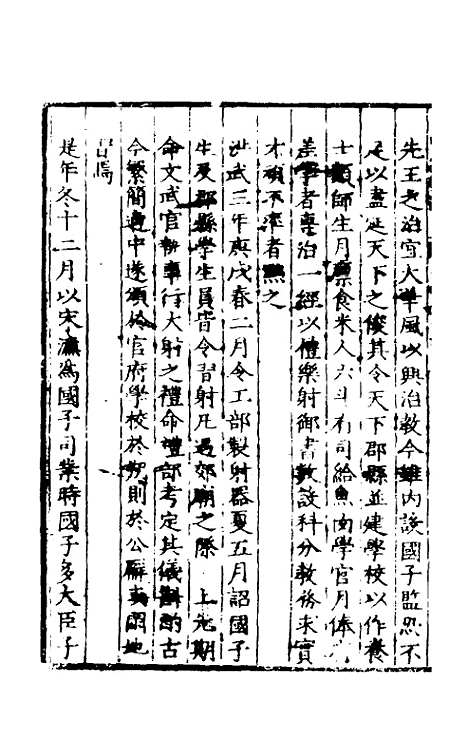 先王之治宜大華風以興治教今雖內設國子監恐不
足以盡延天下之俊其令天下郡縣並建學校以作養
士類師生月廪食米人六斗有司給魚肉學官月俸
差學者專治一經以禮樂射御書數設科分教務求實
才頑不率者黜之
洪武三年庚戌春二月令工部製射器夏五月詔國子
生及郡縣學生員皆令習射凡遇郊廟之際 上先期
命文武官執事行大射之禮命禮部考定其儀斟酌古
今繁簡適中遂頒於官府學校於朔則於公廨閒地
習焉
是年冬十二月以宋濂為國子司業時國子多大臣子